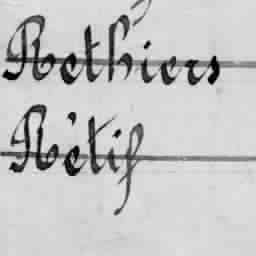 Rethiers
Rétif